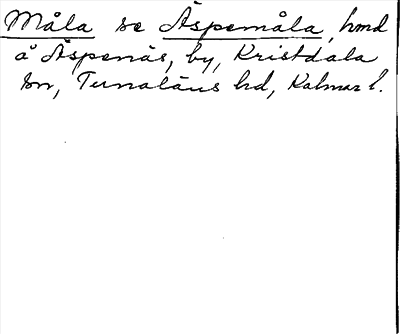 Måla se Äspemåla, hmd
å Äspenäs, by, Kristdala
sn, Tunaläns hd, Kalmar l.